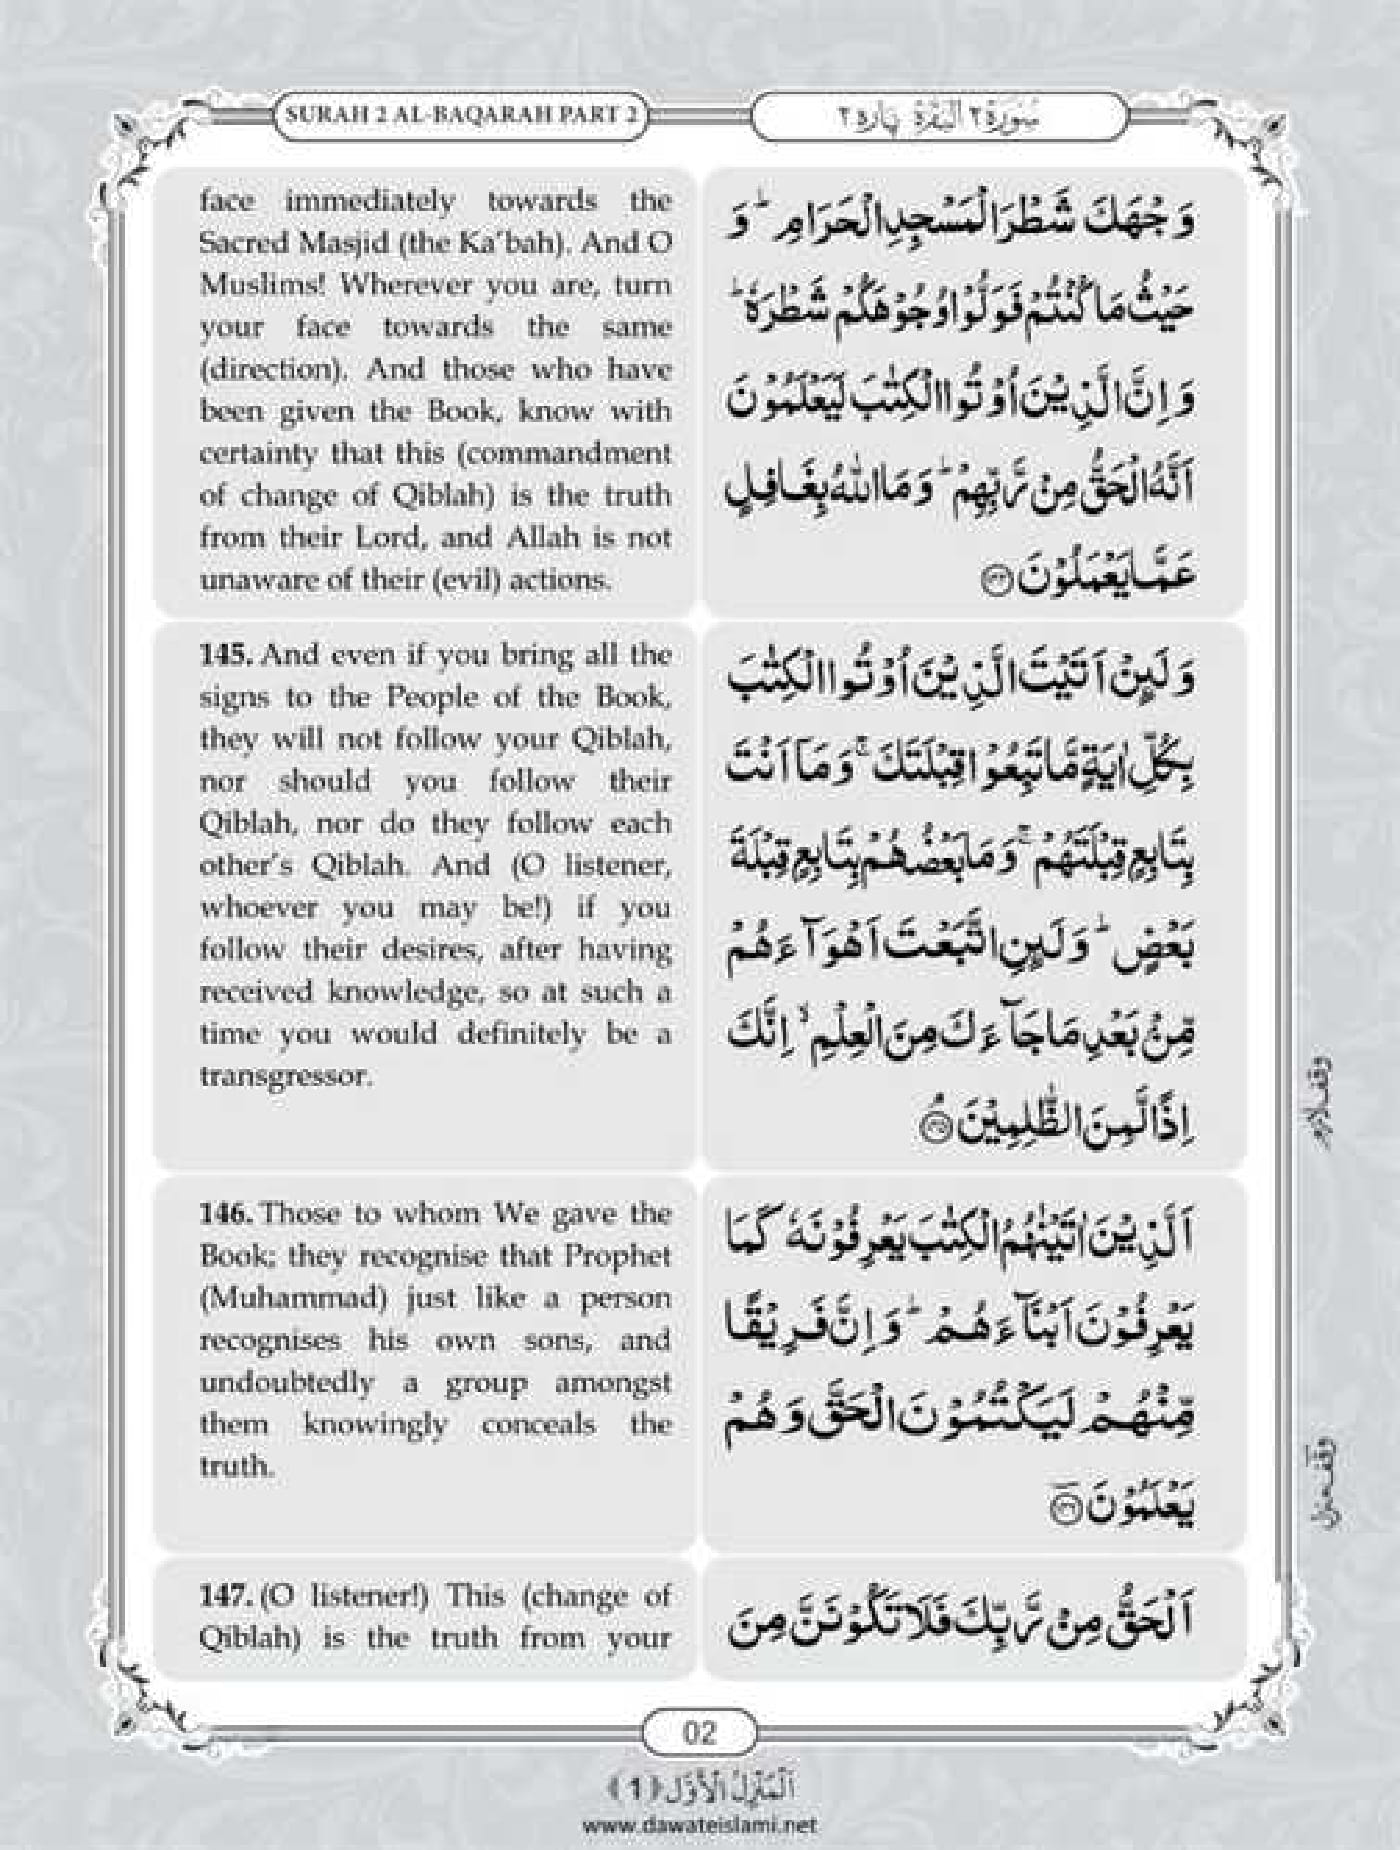 SURAH 2 AL-BAQARAH PART 2
سُوْرَةُ ٢ الْبَقَرَةِ پارہ ٢
face immediately towards the
Sacred Masjid (the Ka'bah). And O
Muslims! Wherever you are, turn
your face towards the same
(direction). And those who have
been given the Book, know with
certainty that this (commandment
of change of Qiblah) is the truth
from their Lord, and Allah is not
unaware of their (evil) actions.
وَجْهَكَ شَطْرَ الْمَسْجِدِ الْحَرَامِ ؕ وَ
حَيْثُ مَا كُنْتُمْ فَوَلُّوْا وُجُوْهَكُمْ شَطْرَهٗ ؕ
وَ اِنَّ الَّذِيْنَ اُوْتُوا الْكِتٰبَ لَيَعْلَمُوْنَ
اَنَّهُ الْحَقُّ مِنْ رَّبِّهِمْ ؕ وَ مَا اللّٰهُ بِغَافِلٍ
عَمَّا يَعْمَلُوْنَ ﴿۱۴۴﴾
145. And even if you bring all the
signs to the People of the Book,
they will not follow your Qiblah,
nor should you follow their
Qiblah, nor do they follow each
other's Qiblah. And (O listener,
whoever you may be!) if you
follow their desires, after having
received knowledge, so at such a
time you would definitely be a
transgressor.
وَ لَىِٕنْ اَتَيْتَ الَّذِيْنَ اُوْتُوا الْكِتٰبَ
بِكُلِّ اٰيَةٍ مَّا تَبِعُوْا قِبْلَتَكَ ۚ وَ مَاۤ اَنْتَ
بِتَابِعٍ قِبْلَتَهُمْ ۚ وَ مَا بَعْضُهُمْ بِتَابِعٍ قِبْلَةَ
بَعْضٍ ؕ وَ لَىِٕنِ اتَّبَعْتَ اَهْوَآءَهُمْ
مِّنْۢ بَعْدِ مَا جَآءَكَ مِنَ الْعِلْمِ ۙ اِنَّكَ
اِذًا لَّمِنَ الظّٰلِمِيْنَ ۘ﴿۱۴۵﴾
وقف لازم
146. Those to whom We gave the
Book; they recognise that Prophet
(Muhammad) just like a person
recognises his own sons, and
undoubtedly a group amongst
them knowingly conceals the
truth.
اَلَّذِيْنَ اٰتَيْنٰهُمُ الْكِتٰبَ يَعْرِفُوْنَهٗ كَمَا
يَعْرِفُوْنَ اَبْنَآءَهُمْ ؕ وَ اِنَّ فَرِيْقًا
مِّنْهُمْ لَيَكْتُمُوْنَ الْحَقَّ وَ هُمْ
يَعْلَمُوْنَ ﴿۱۴۶﴾
147. (O listener!) This (change of
Qiblah) is the truth from your
اَلْحَقُّ مِنْ رَّبِّكَ فَلَا تَكُوْنَنَّ مِنَ
02
اَلْمَنْزِلُ الْاَوَّل ﴿1﴾
www.dawateislami.net